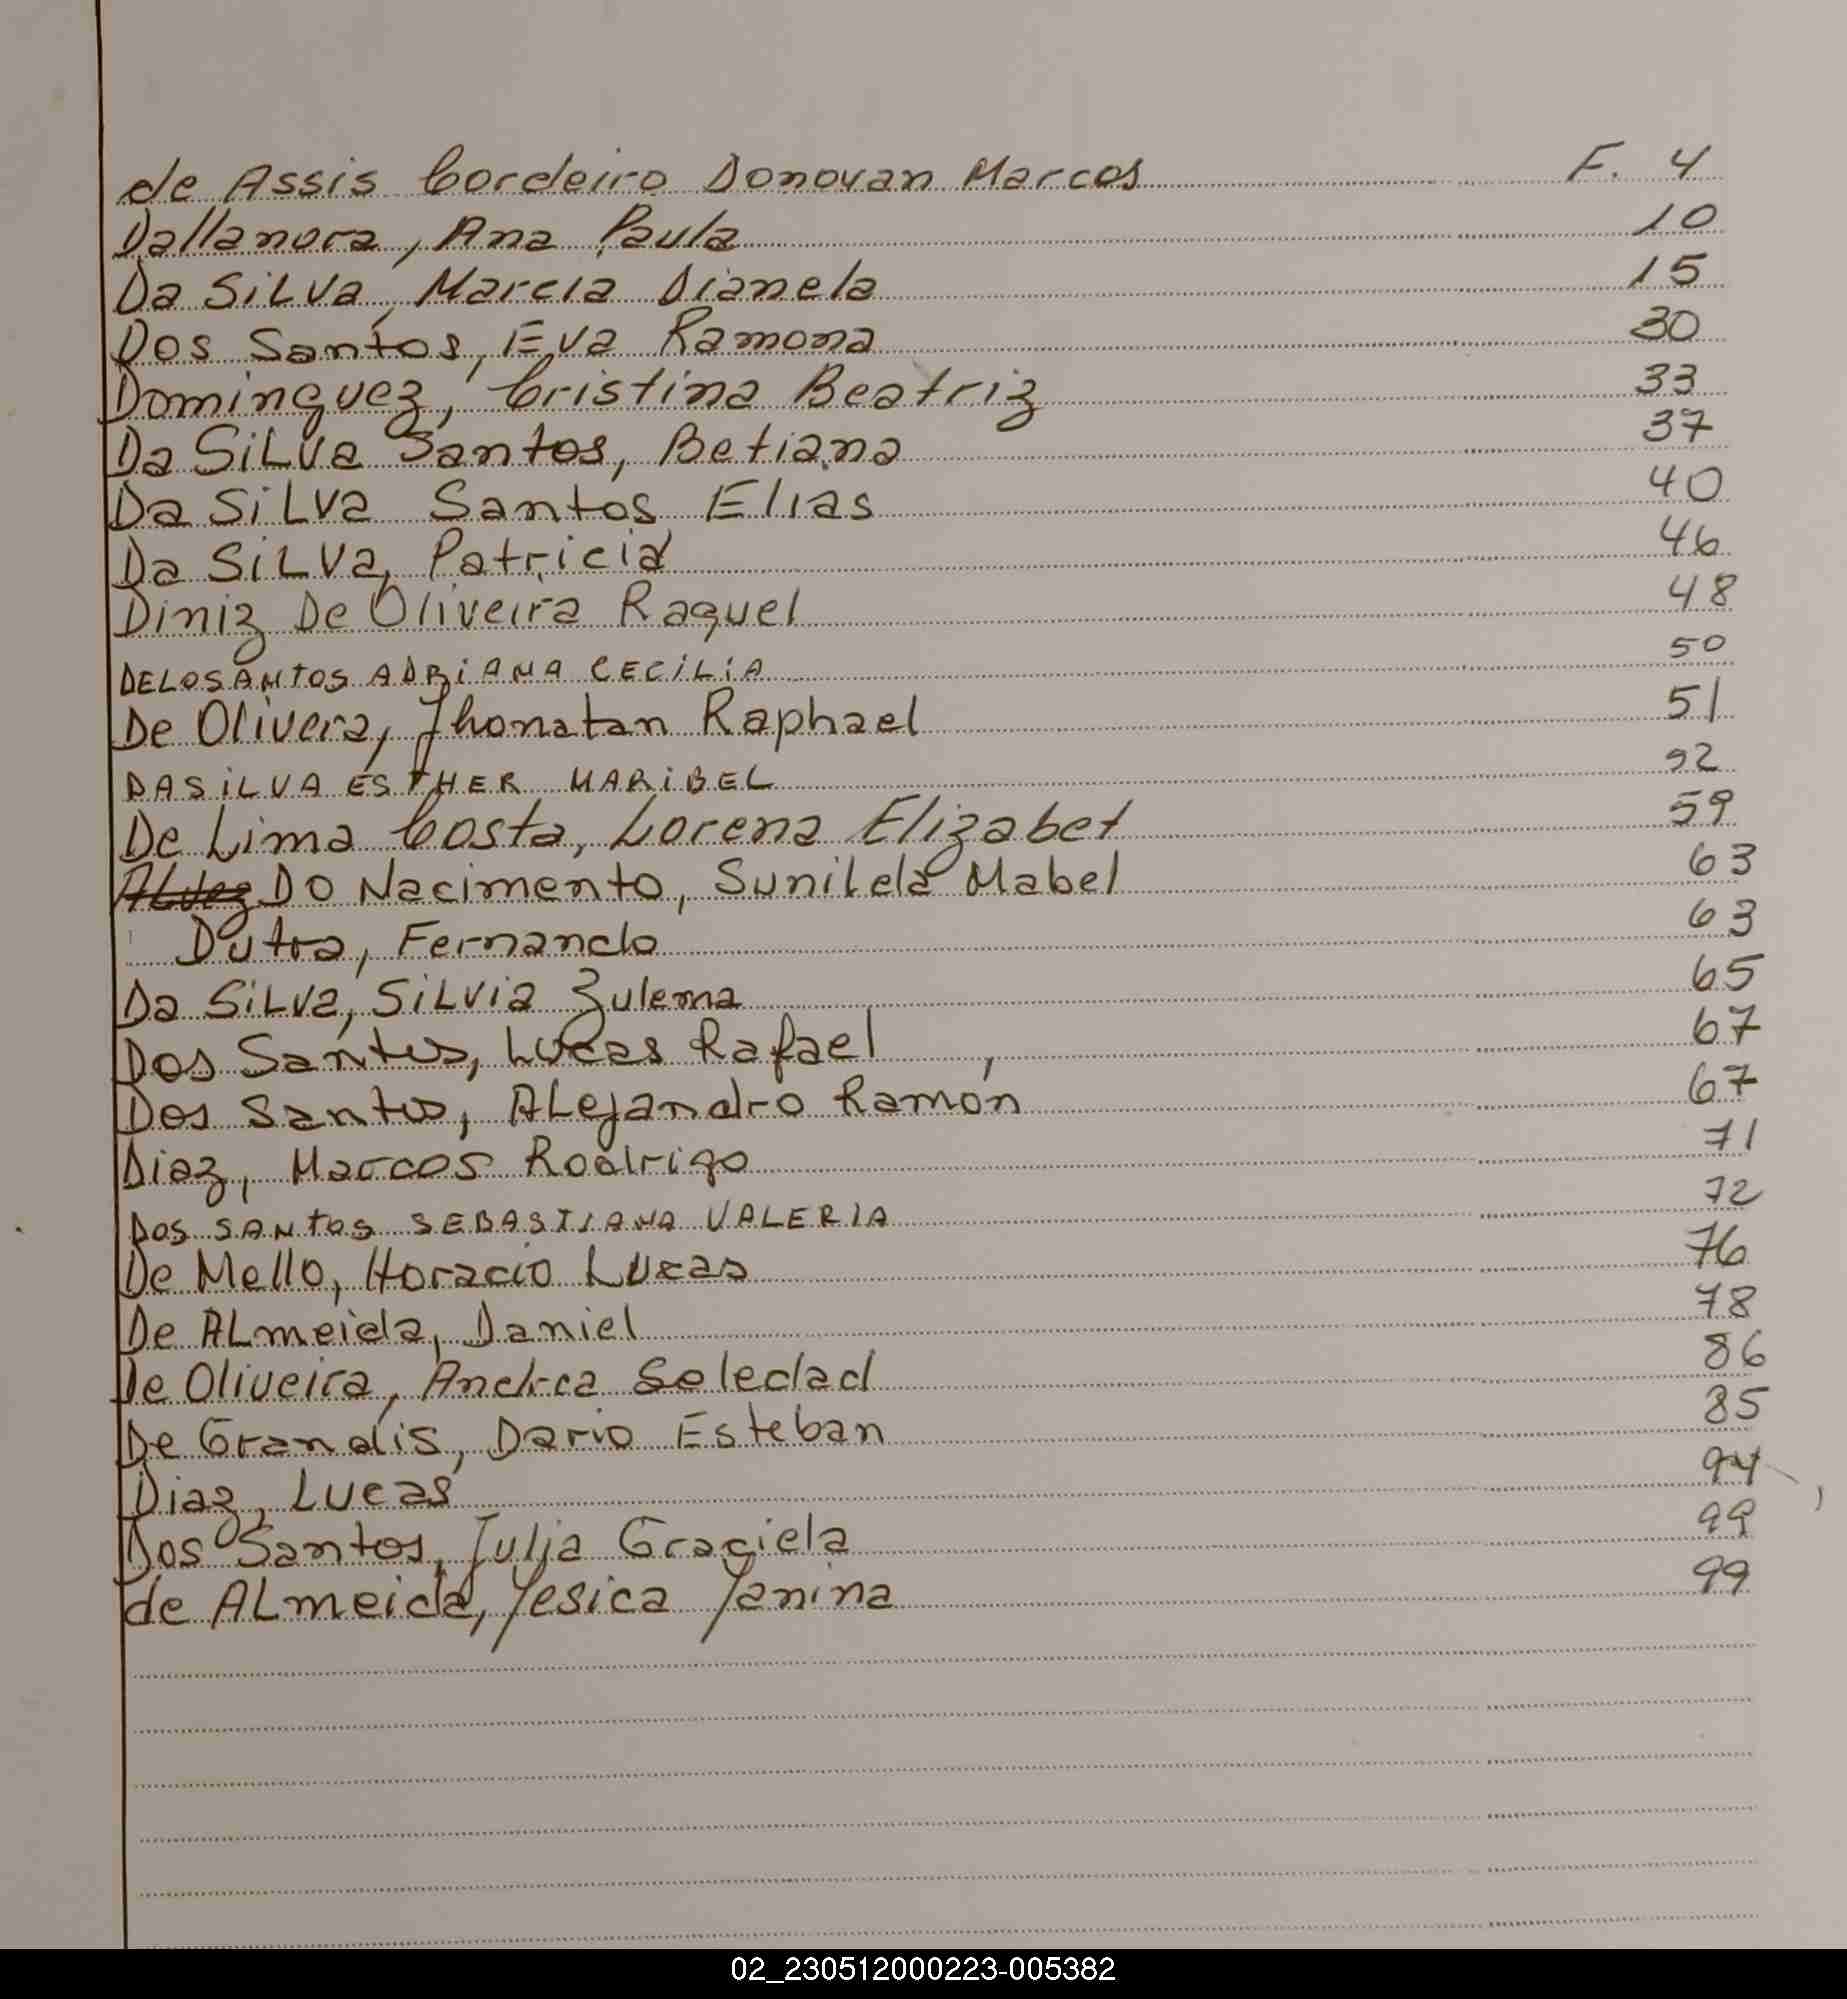 de Assis Cordeiro Donovan Marcos F. 4
Dallanora, Ana Paula 10
Da SiLva, Marcia Dianela 15
Dos Santos, Eva Ramona 30
Dominguez, Cristina Beatriz 33
Da SiLva Santos, Betiana 37
Da SiLva Santos Elias 40
Da SiLva, Patricia 46
Diniz De Oliveira Raquel 48
DELOSANTOS ADRiANA CECiLiA 50
De Olivera, Jhonatan Raphael 51
DASiLVA ESTHER MARiBEL 52
De Lima Costa, Lorena Elizabet 59
ALvez DO Nacimento, Sunilela Mabel 63
Dutra, Fernando 63
Da SiLva, SiLvia Zulema 65
Dos Santos, Lucas Rafael 67
Dos Santos, ALejandro Ramón 67
Diaz, Marcos Rodrigo 71
DOS SANTOS SEBASTIANA VALERIA 72
De Mello, Horacio Lucas 76
De ALmeida, Daniel 78
De Oliveira, Andrea Soledad 86
De Grandis, Dario Esteban 85
Diaz, Lucas 94
Dos Santos, Julia Graciela 99
de ALmeida, Yesica Yanina 99
02_230512000223-005382